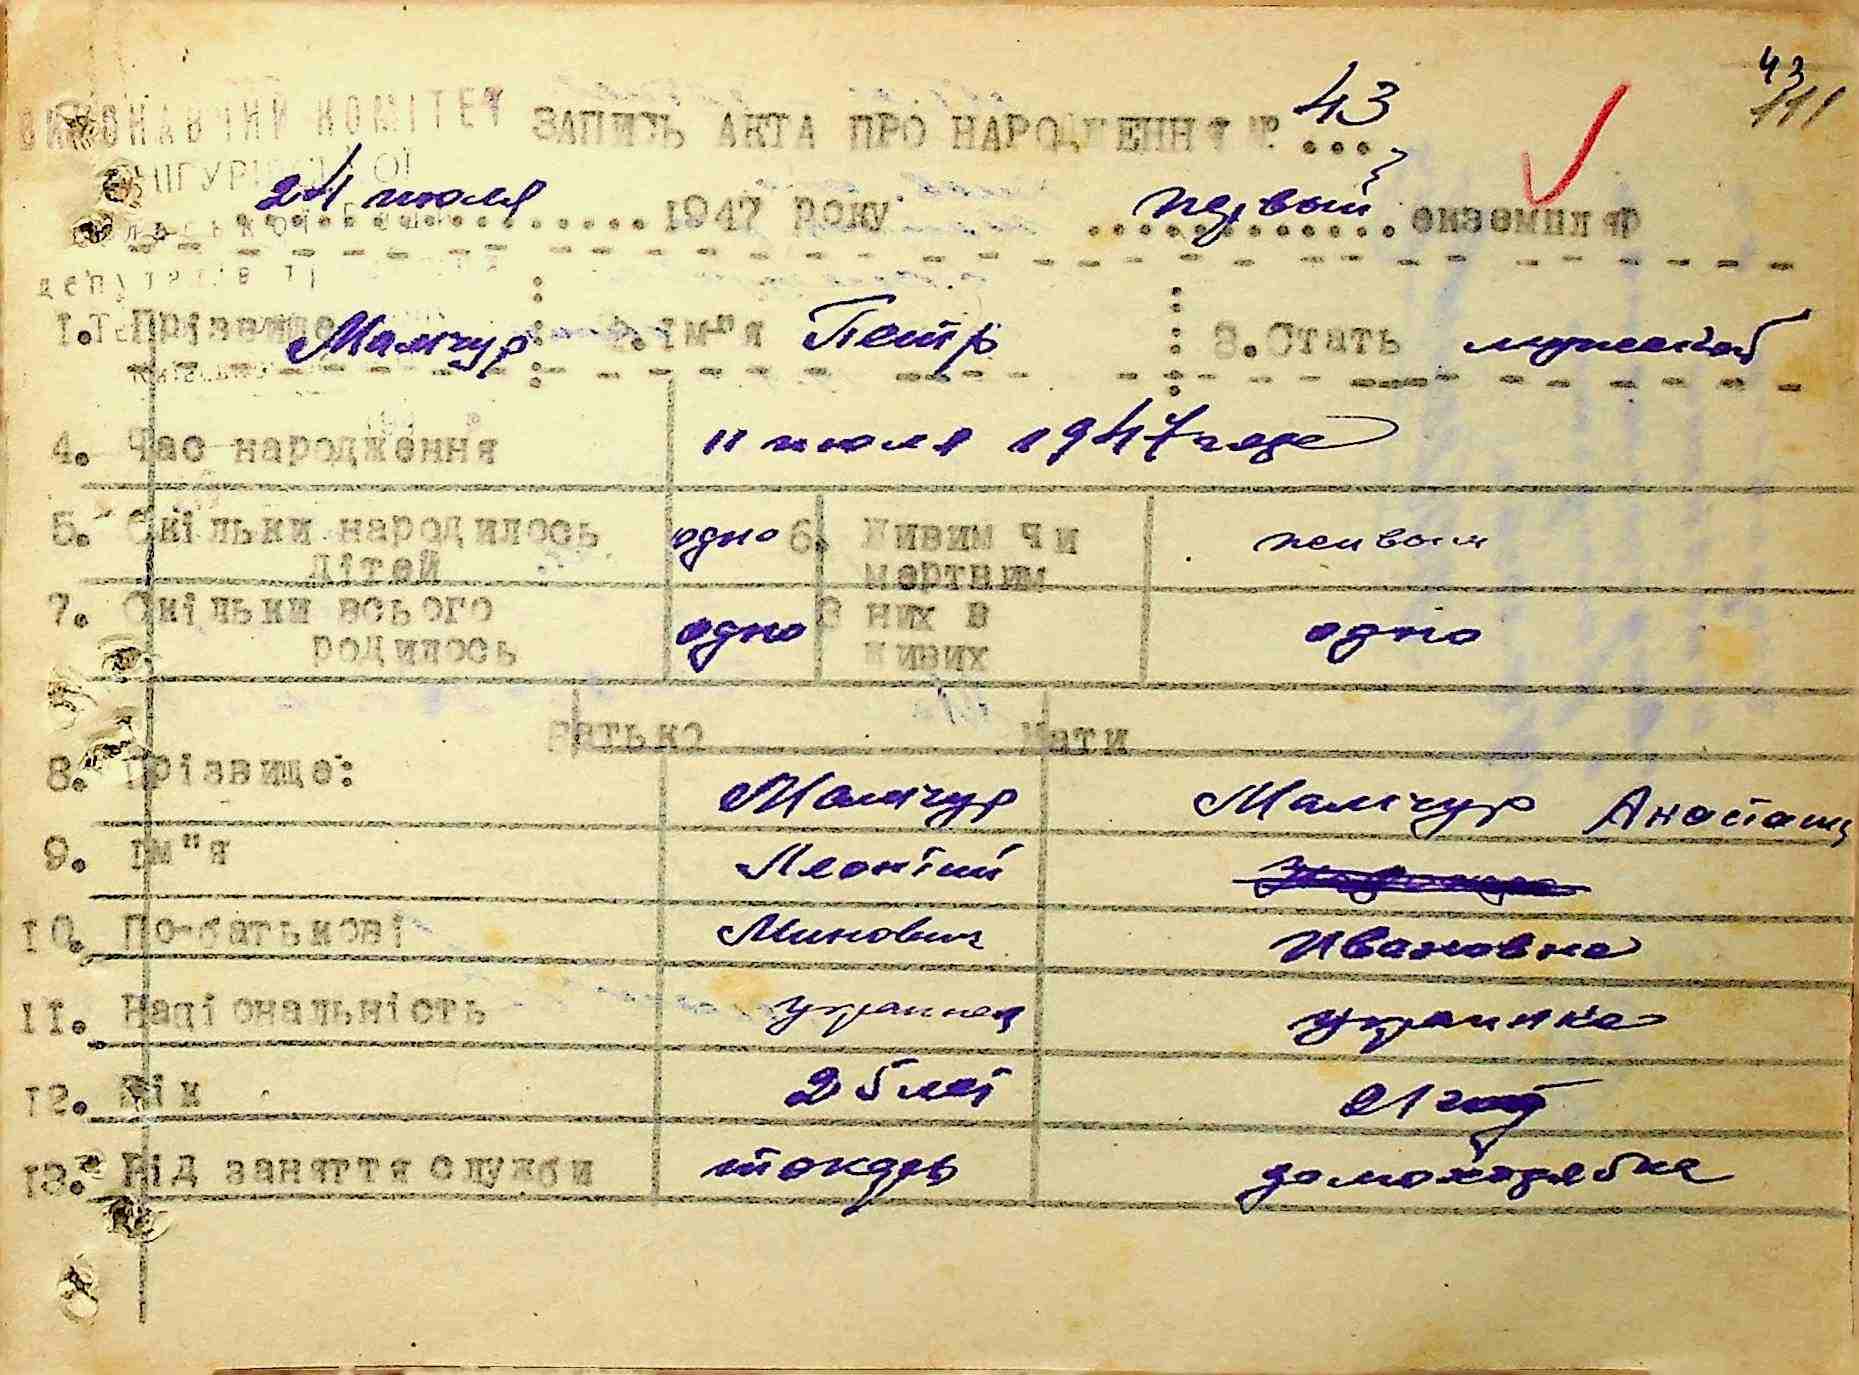 43
111
ВИКОНАВЧИЙ КОМІТЕТ ЗАПИСЬ АКТА ПРО НАРОДЖЕННЯ № 43
24 июля 1947 року первый екземпляр
депутатів ті
1. Прізвище Мамчур 2. Ім"я Петр 3. Стать мужской
4. Час народження 11 июля 1947 года
5. Скільки народилось дітей одно 6. Живим чи мертвим живым
7. Скільки всього родилось одно З них в живих одно
Батько Мати
8. Прізвище: Мамчур Мамчур Анастасия
9. Ім"я Леонтий
10. По-батькові Минович Ивановна
11. Національність украинец украинка
12. Вік 25 лет 21 год
13. Від заняття служби токарь домохозяйка